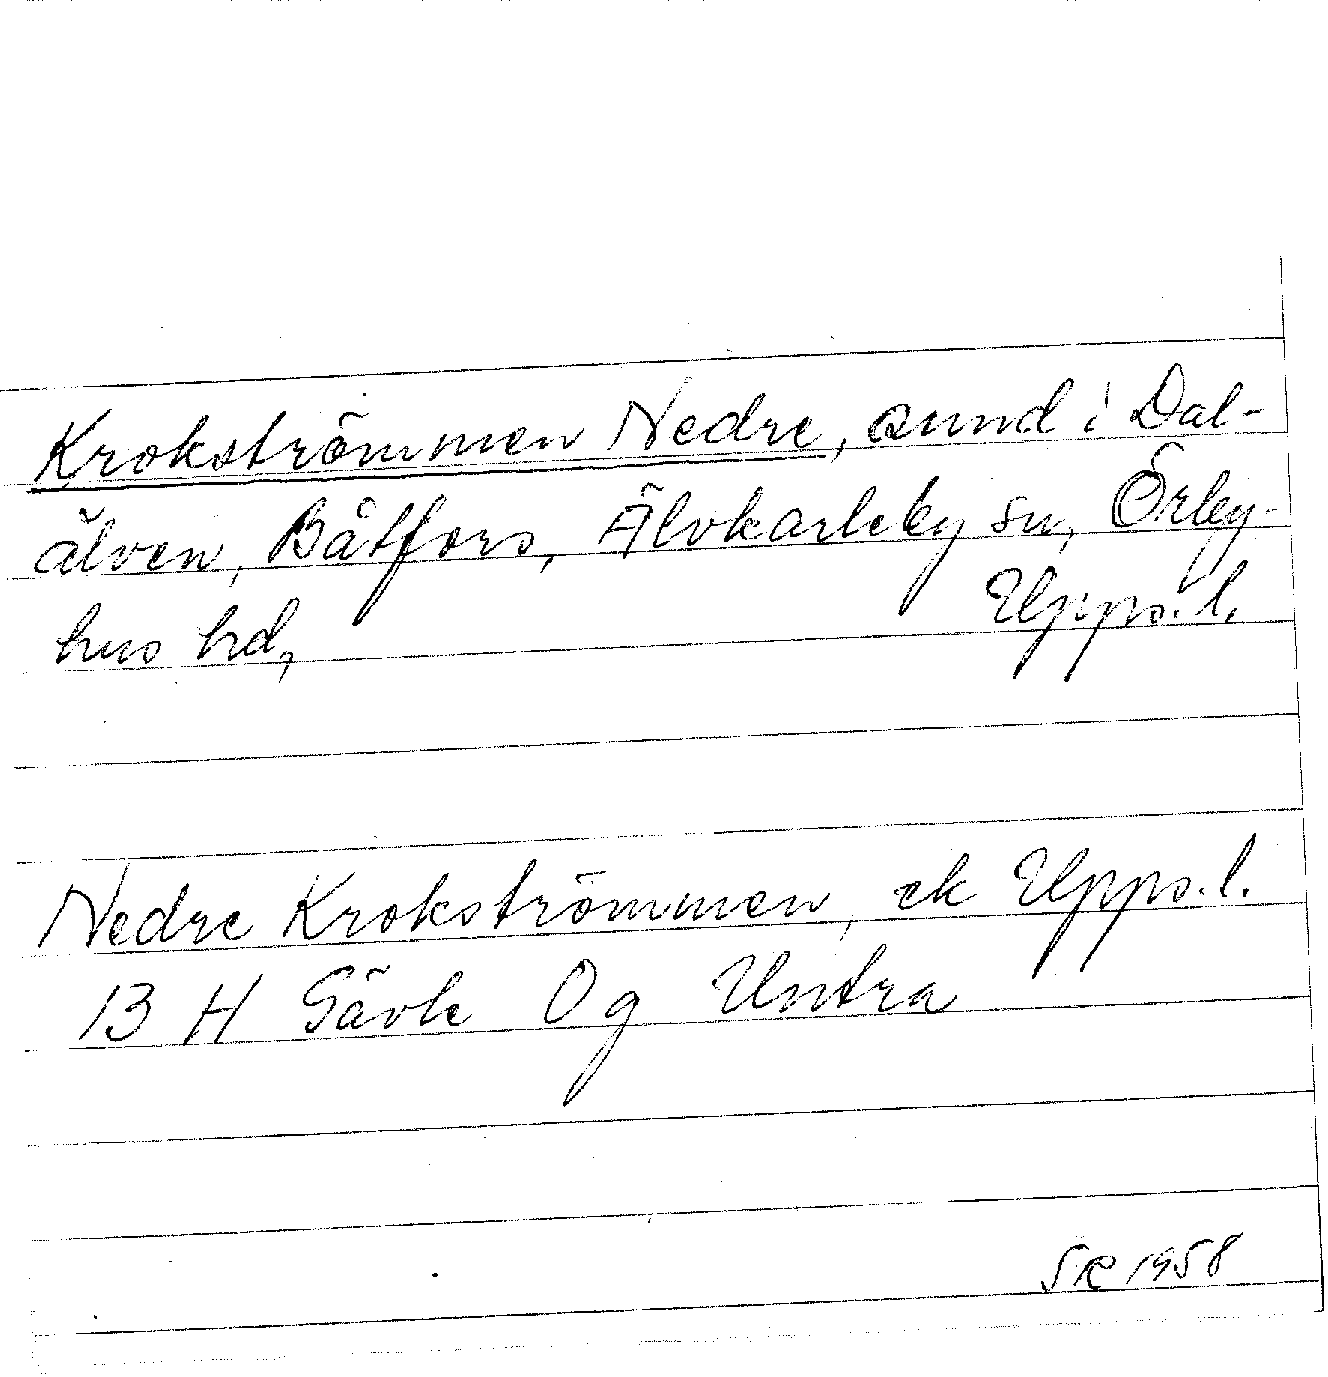 Krokströmmen Nedre, sund i Dal-
älven, Båtfors, Älvkarleby sn, Örby-
hus hd, Upps. l.
Nedre Krokströmmen, ek Upps. l.
13 H Gävle Og Untra
SR 1958